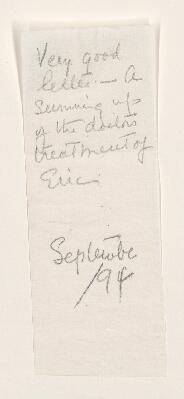 Very good
letter — A
summing up
of the doctors
treatment of
Eric
Septembe
/94